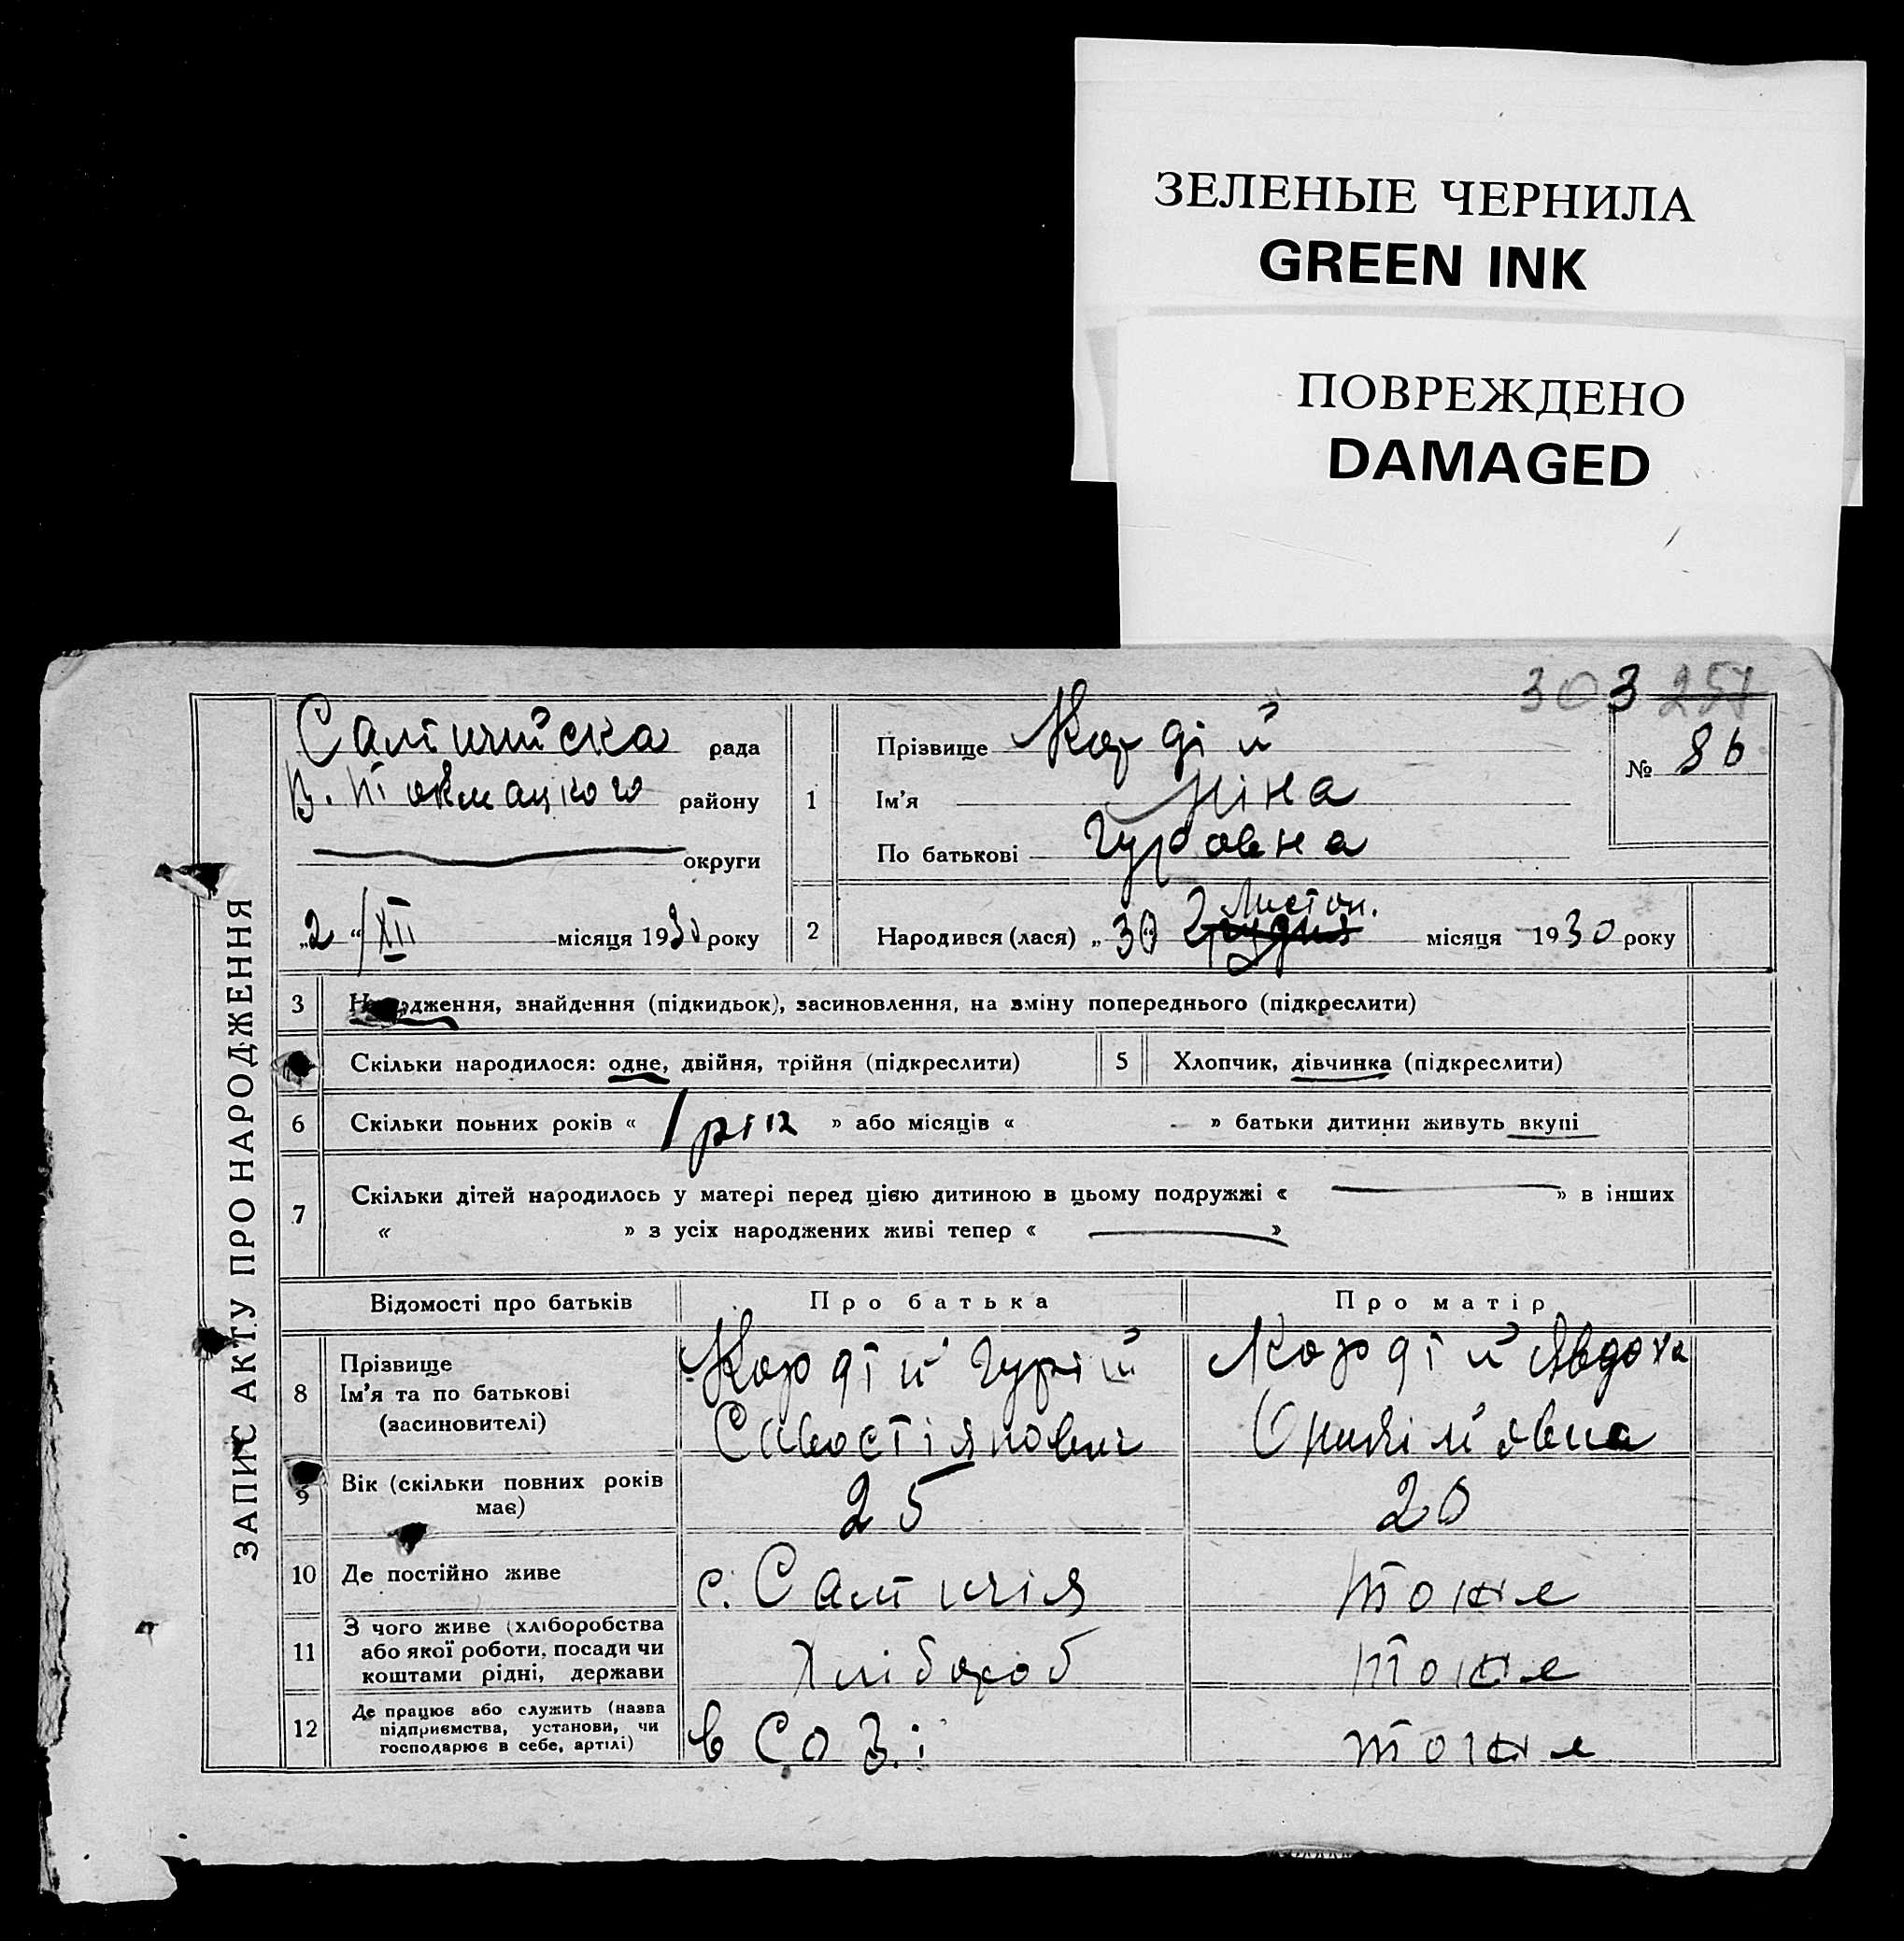 ЗЕЛЕНЫЕ ЧЕРНИЛА
GREEN INK
ПОВРЕЖДЕНО
DAMAGED
303 257
ЗАПИС АКТУ ПРО НАРОДЖЕННЯ
Салтичійська рада
В. Токмацького району
округи
„2“ / XII місяця 1930 року
1
Прізвище Кордій
Ім'я Ніна
По батькові Гуровна
№ 86
2
Листоп.
Народився (лася) „30 Грудня місяця 1930 року
3 Народження, знайдення (підкидьок), засиновлення, на зміну попереднього (підкреслити)
Скільки народилося: одне, двійня, трійня (підкреслити) 5 Хлопчик, дівчинка (підкреслити)
6 Скільки повних років « 1 рік » або місяців « » батьки дитини живуть вкупі
7 Скільки дітей народилось у матері перед цією дитиною в цьому подружжі « — » в інших
« » з усіх народжених живі тепер « — »
Відомості про батьків Про батька Про матір
8 Прізвище
Ім'я та по батькові
(засновителі)
Кордій Гурій
Савостіянович
Кордій Явдоха
9 Вік (скільки повних років
має)
25 20
10 Де постійно живе с. Салтичія тоже
11 З чого живе (хліборобства
або якої роботи, посади чи
коштами рідні, держави
Хлібороб тоже
12 Де працює або служить (назва
підприємства, установи, чи
господарює в себе, артілі)
в СОЗ.і тоже